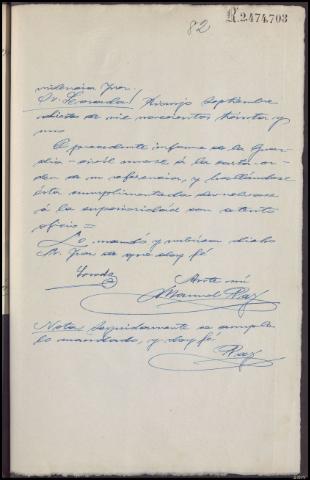 82
R.2.474.703
Providencia Juez.
Sr. Losada / Armijo Septiembre
dieciseis de mil novecientos treinta y
uno
El precedente informe de la Guar-
dia civil unase á la carta-or-
den de su referencia, y hallandose
ésta cumplimentada devuelvase
á la superioridad con atento
oficio =
Lo mandó y rubrica dicho
Sr. Juez de que doy fé
Ante mi
Manuel Paz
Nota Seguidamente se cumple
lo mandado, y doy fé
Paz